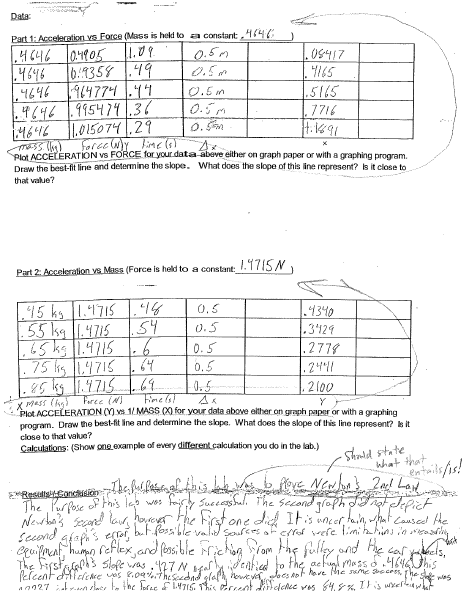 Data:
Part 1: Acceleration vs Force (Mass is held to a constant: .4646 )
.4646 0.4905 1.09 0.5m .08417
.4646 0.9358 .49 0.5m .4165
.4646 .964774 .44 0.5m .5165
.4646 .995474 .36 0.5m .7716
.4646 1.015074 .29 0.5m 1.1891
mass (kg) force(N) y time(s) Δx x
Plot ACCELERATION vs FORCE for your data above either on graph paper or with a graphing program.
Draw the best-fit line and determine the slope. What does the slope of this line represent? Is it close to
that value?
Part 2: Acceleration vs Mass (Force is held to a constant: 1.4715 N )
.45 kg 1.4715 .48 0.5 .4340
.55 kg 1.4715 .54 0.5 .3429
.65 kg 1.4715 .6 0.5 .2778
.75 kg 1.4715 .64 0.5 .2441
.85 kg 1.4715 .69 0.5 .2100
x mass (kg) Force (N) time(s) Δx Y
Plot ACCELERATION (Y) vs 1/ MASS (X) for your data above either on graph paper or with a graphing
program. Draw the best-fit line and determine the slope. What does the slope of this line represent? Is it
close to that value?
Calculations: (Show one example of every different calculation you do in the lab.)
Should state
what that
entails/is!
Results / Conclusion The purpose of this lab was to prove Newton's 2nd Law
The purpose of this lab was fairly successful. The second graph did not depict
Newton's second law, however the first one did. It is uncertain what caused the
second graph's error but possible valid sources of error were limitations in measuring
equipment, human reflex, and possible friction from the pulley and the car wheels.
The first graph's slope was .427 N nearly identical to the actual mass of .4646. This
percent difference was 8.09%. The second graph however, does not have the same success. The slope was
to the force of 1.4715. This percent difference was 64.8%. It is uncertain what